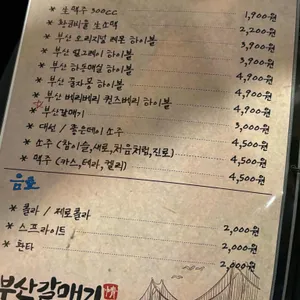 * 생맥주 300cc 1,900원
* 황금비율 생소맥 2,200원
* 부산 오리지널 레몬 하이볼 3,900원
* 부산 얼그레이 하이볼 3,900원
* 부산 하순매실 하이볼 4,900원
* 부산 꿀자몽 하이볼 4,900원
* 부산 베리베리 퀸즈베리 하이볼 4,900원
☆ 부산갈매기 3,000원
* 대선 / 좋은데이 소주 4,500원
* 소주 (참이슬,새로,처음처럼,진로) 4,500원
* 맥주 (카스,테라,켈리) 4,500원
음료
* 콜라 / 제로콜라 2,000원
* 스프라이트 2,000원
* 환타 2,000원
부산갈매기